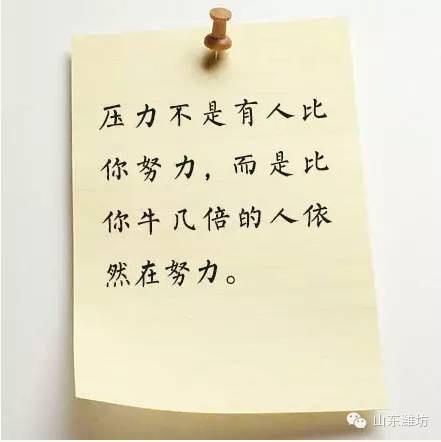 压力不是有人比
你努力，而是比
你牛几倍的人依
然在努力。
山东潍坊